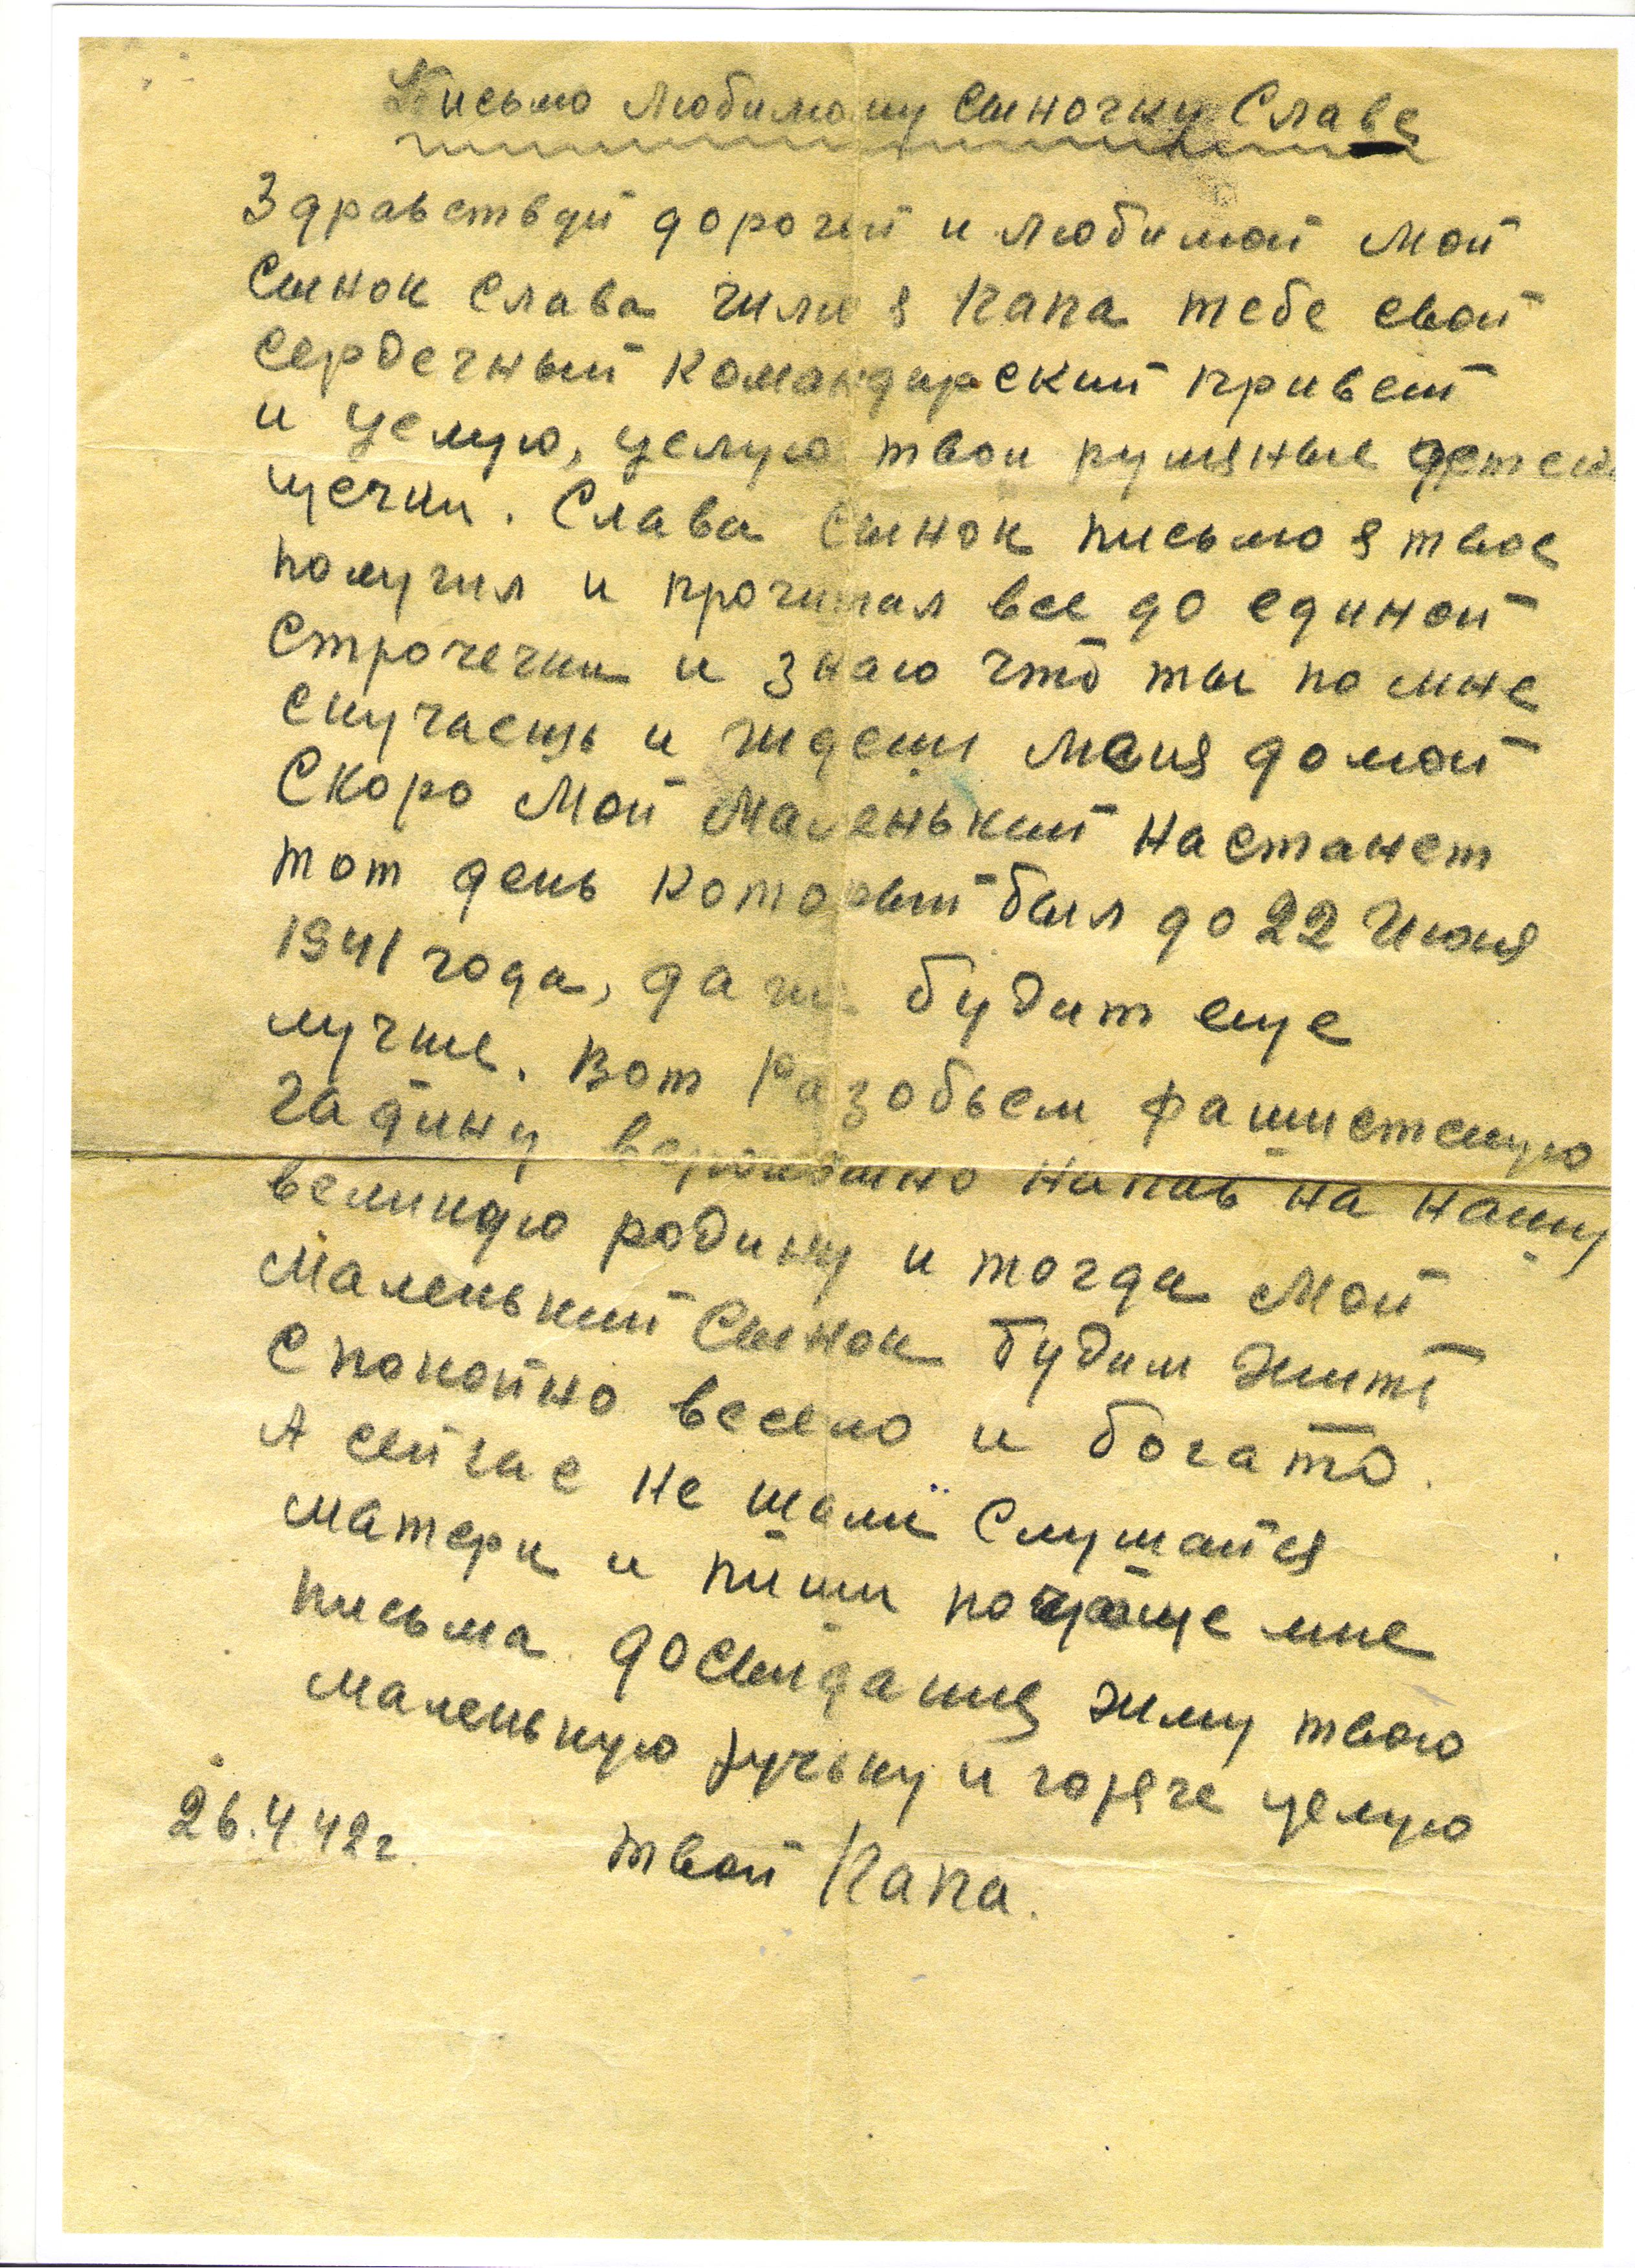 Письмо любимому сыночку Славе
Здравствуй дорогой и любимой мой
Сынок Слава шлю я папа тебе свой
сердечный командирский привет
и целую, целую твои румяные детски
щечки. Слава Сынок письмо я твое
получил и прочитал все до единой
строчечки и знаю что ты по мне
скучаешь и ждеш меня домой
Скоро Мой Маленький настанет
тот день который был до 22 Июня
1941 года, даже будит еще
лучше. Вот Разобьем фашистскую
гадину вероломно напав на нашу
великую родину и тогда Мой
Маленький Сынок будим жить
спокойно весело и богато.
А сейчас не шали Слушайся
матери и пиши почаще мне
письма. досвидания жму твою
маленькую ручьку и горяче целую
26.4.42г. твой Папа.